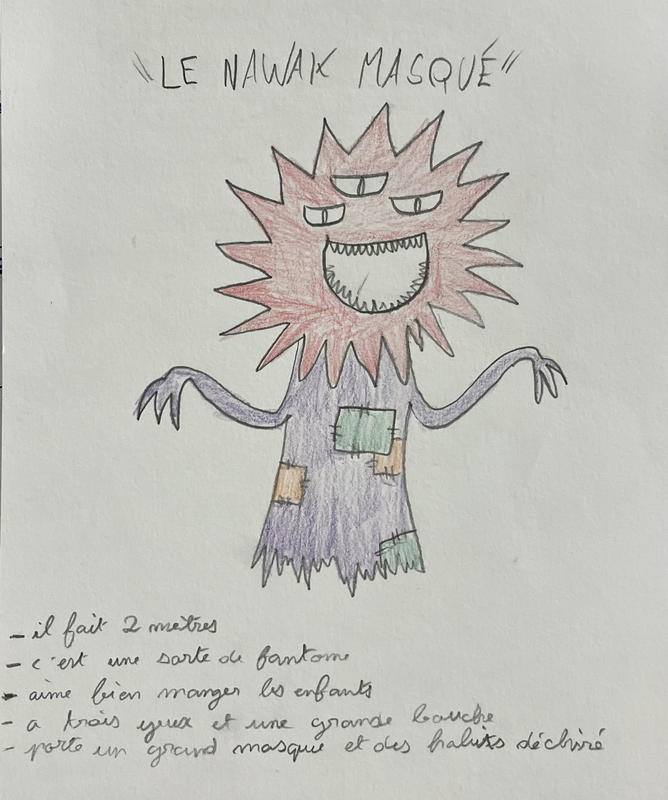 "LE NAWAK MASQUÉ"
- il fait 2 mètres
- c'est une sorte de fantome
- aime bien manger les enfants
- a trois yeux et une grande bouche
- porte un grand masque et des habits déchiré